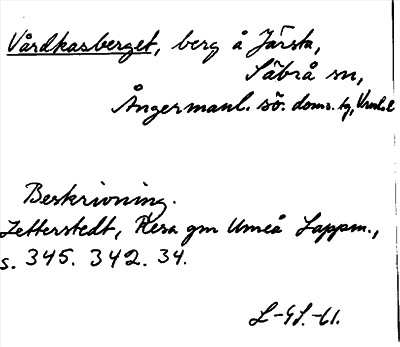 Vårdkasberget, berg å Järsta,
Säbrå sn,
Ångermanl. sö. doms. tg,
Beskrivning.
Zetterstedt, Resa gm Umeå Lappm.,
s. 345. 342. 34.